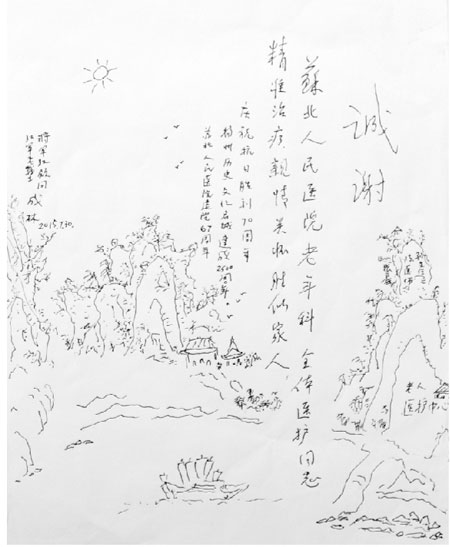 诚谢
蘇北人民医院老年科 全体医护同志
精准治疗親情关怀胜似家人
庆祝抗日胜利70周年
扬州历史文化名城建城2500周年
苏北人民医院建院67周年
成林
2015.7.30.
老人
医护中心